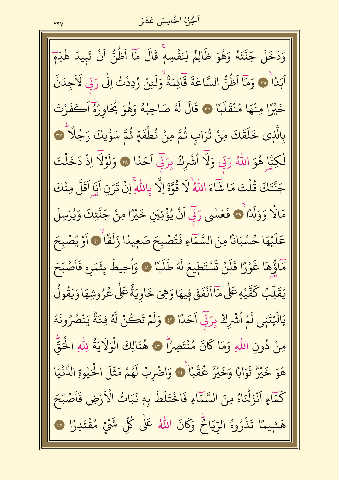 اَلْجُزْءُ الْخَامِسَ عَشَرَ
وَدَخَلَ جَنَّتَهُ وَهُوَ ظَالِمٌ لِنَفْسِهِۚ قَالَ مَٓا اَظُنُّ اَنْ تَب۪يدَ هٰذِه۪ٓ
اَبَدًاۙ وَمَٓا اَظُنُّ السَّاعَةَ قَٓائِمَةًۙ وَلَئِنْ رُدِدْتُ اِلٰى رَبّ۪ي لَاَجِدَنَّ
خَيْرًا مِنْهَا مُنْقَلَبًا قَالَ لَهُ صَاحِبُهُ وَهُوَ يُحَاوِرُهُٓ اَكَفَرْتَ
بِالَّذ۪ي خَلَقَكَ مِنْ تُرَابٍ ثُمَّ مِنْ نُطْفَةٍ ثُمَّ سَوّٰيكَ رَجُلًاۜ
لٰكِنَّا۬ هُوَ اللّٰهُ رَبّ۪ي وَلَٓا اُشْرِكُ بِرَبّ۪ٓي اَحَدًا وَلَوْلَٓا اِذْ دَخَلْتَ
جَنَّتَكَ قُلْتَ مَا شَٓاءَ اللّٰهُۙ لَا قُوَّةَ اِلَّا بِاللّٰهِۚ اِنْ تَرَنِ اَنَا۬ اَقَلَّ مِنْكَ
مَالًا وَوَلَدًاۚ فَعَسٰى رَبّ۪ٓي اَنْ يُؤْتِيَنِ خَيْرًا مِنْ جَنَّتِكَ وَيُرْسِلَ
عَلَيْهَا حُسْبَانًا مِنَ السَّمَٓاءِ فَتُصْبِحَ صَع۪يدًا زَلَقًاۙ اَوْ يُصْبِحَ
مَٓاؤُ۬هَا غَوْرًا فَلَنْ تَسْتَط۪يعَ لَهُ طَلَبًا وَاُح۪يطَ بِثَمَرِه۪ فَاَصْبَحَ
يُقَلِّبُ كَفَّيْهِ عَلٰى مَٓا اَنْفَقَ ف۪يهَا وَهِيَ خَاوِيَةٌ عَلٰى عُرُوشِهَا وَيَقُولُ
يَا لَيْتَن۪ي لَمْ اُشْرِكْ بِرَبّ۪ٓي اَحَدًا وَلَمْ تَكُنْ لَهُ فِئَةٌ يَنْصُرُونَهُ
مِنْ دُونِ اللّٰهِ وَمَا كَانَ مُنْتَصِرًاۜ هُنَالِكَ الْوَلَايَةُ لِلّٰهِ الْحَقِّۜ
هُوَ خَيْرٌ ثَوَابًا وَخَيْرٌ عُقْبًا۟ وَاضْرِبْ لَهُمْ مَثَلَ الْحَيٰوةِ الدُّنْيَا
كَمَٓاءٍ اَنْزَلْنَاهُ مِنَ السَّمَٓاءِ فَاخْتَلَطَ بِه۪ نَبَاتُ الْاَرْضِ فَاَصْبَحَ
هَش۪يمًا تَذْرُوهُ الرِّيَاحُۜ وَكَانَ اللّٰهُ عَلٰى كُلِّ شَيْءٍ مُقْتَدِرًا